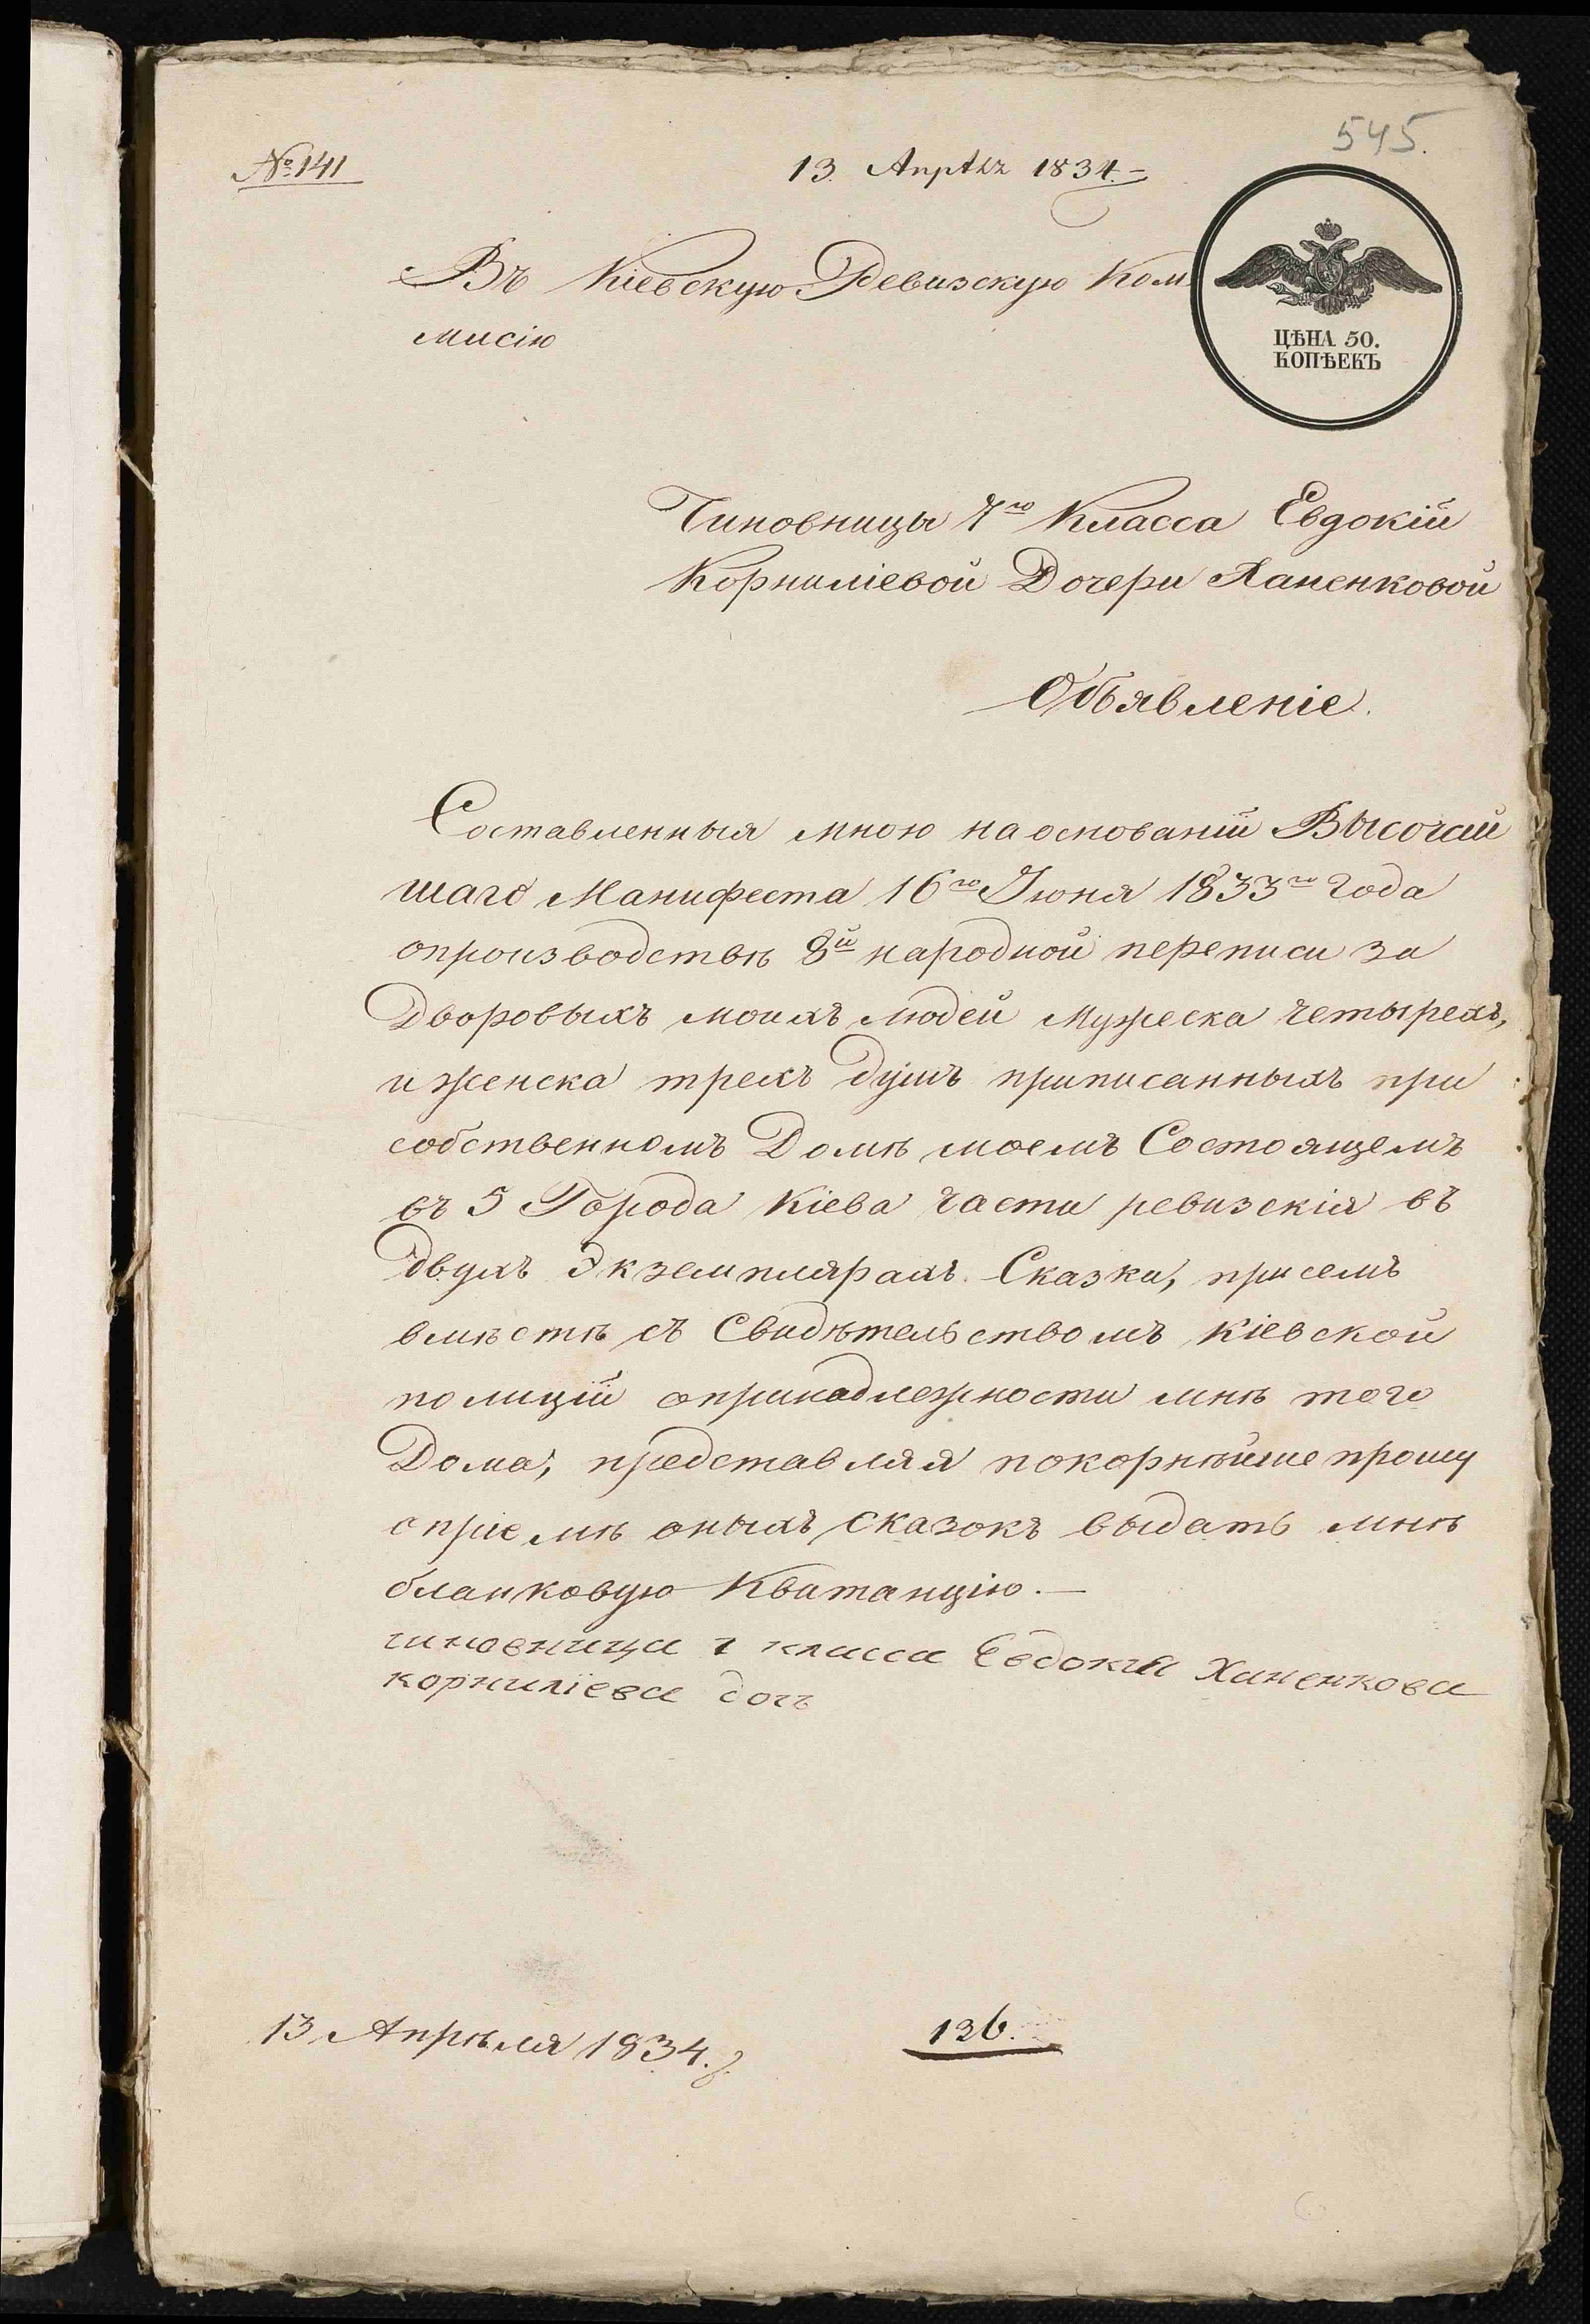 545.
№ 141
13. Апрѣля 1834.-
Въ Кіевскую Ревизскую Ком
мисію
ЦѢНА 50.
КОПѢЕКЪ
Чиновницы 7го Класса Евдокіи
Корниліевой Дочери Ханенковой
Объявленіе.
Составленныя мною на основаніи Высочай
шаго Манифеста 16го Іюня 1833го года
опроизводствѣ 8й народной переписи за
Дворовыхъ моихъ людей Мужеска четырехъ,
и женска трехъ душъ приписанныхъ при
собственномъ Домѣ моемъ Состоящемъ
въ 5 Города Кіева части ревизскія въ
двухъ Экземплярахъ Сказки, при семъ
вмѣстѣ съ Свидѣтельствомъ Кіевской
полиціи опринадлежности мнѣ того
Дома, представляя покорнѣйше прошу
опріемѣ оныхъ сказокъ выдать мнѣ
бланковую Квитанцію.—
чиновница 7 класса Евдокия Ханенкова
корниліева дочъ
13 Апрѣля 1834.
126.